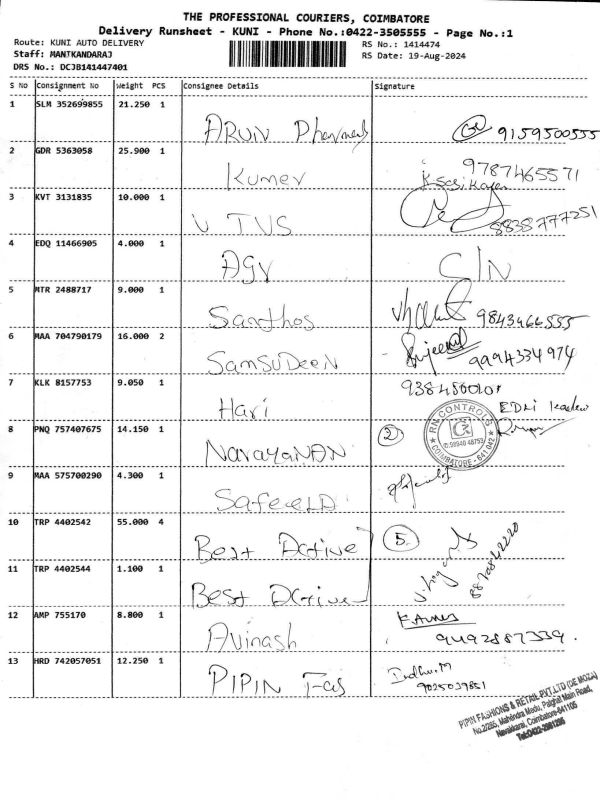 THE PROFESSIONAL COURIERS, COIMBATORE
Delivery Runsheet - KUNI - Phone No.:0422-3505555 - Page No.:1
Route: KUNI AUTO DELIVERY
RS No.: 1414474
Staff: MANIKANDARAJ
RS Date: 19-Aug-2024
DRS No.: DCJB141447401
S No Consignment No Weight PCS Consignee Details Signature
1 SLM 352699855 21.250 1 ARUN 9159500555
2 GDR 5363058 25.900 1 Kumer 9787465571
3 KVT 3131835 10.000 1 U TVS 8838777251
4 EDQ 11466905 4.000 1 AGV S/N
5 MTR 2488717 9.000 1 Santhos 9843466555
6 MAA 704790179 16.000 2 SamSUDeeN 9994334974
7 KLK 8157753 9.050 1 Hari
8 PNQ 757407675 14.150 1 NarayaNAN 2
RN CONTROLS
COIMBATORE - 641 042
9 MAA 575700290 4.300 1
10 TRP 4402542 55.000 4 Best Active 5.
11 TRP 4402544 1.100 1 Best Active 8870842220
12 AMP 755170 8.800 1 Avinash 9492887339.
13 HRD 742057051 12.250 1 PIPIN Fas Indhu.M
9025039851
PIPIN FASHIONS & RETAIL PVT.LTD (DE MOZA)
No.2/285, Mahendra Medu, Palghat Main Road,
Navakkarai, Coimbatore-641105